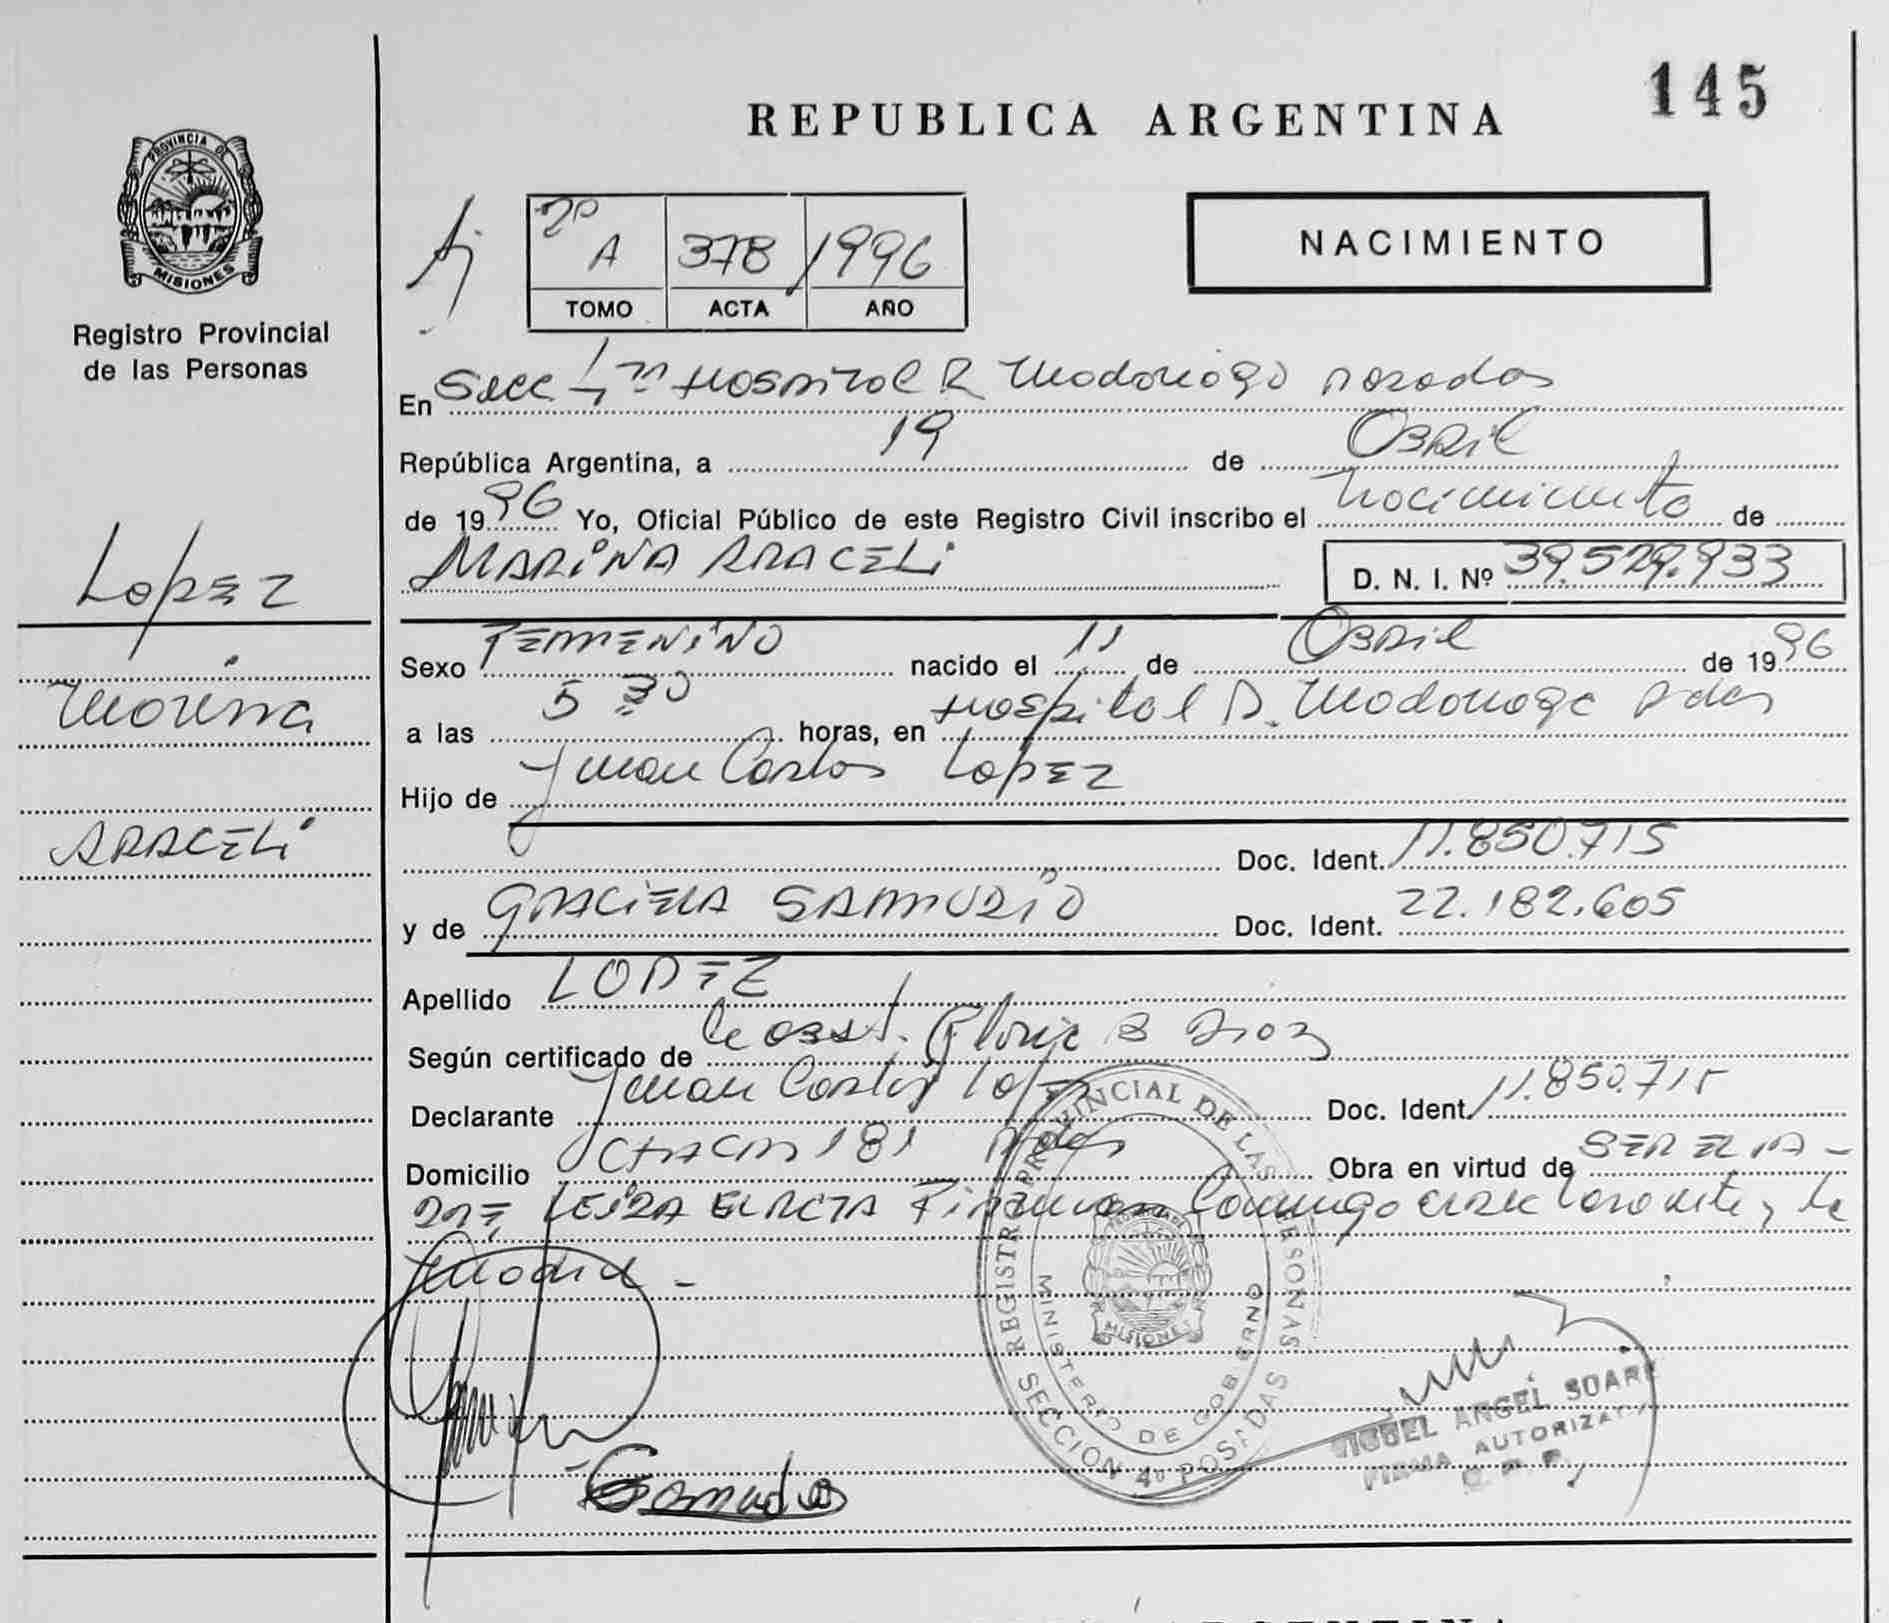 145
REPUBLICA ARGENTINA
PROVINCIA DE
MISIONES
Registro Provincial
de las Personas
2º
A 378 1996
TOMO ACTA AÑO
NACIMIENTO
En Secc 4ta Hospital R Madariaga Posadas
República Argentina, a 19 de Abril
de 1996 Yo, Oficial Público de este Registro Civil inscribo el nacimiento de
MARINA ARACELI D. N. I. Nº 39.529.933
Lopez
Marina
ARACELi
Sexo FEMENiNO nacido el 11 de Abril de 1996
a las 5 30 horas, en Hospital R. Madariaga Pdas
Hijo de Juan Carlos Lopez
Doc. Ident. 11.850.715
y de GRACiELA SAMUDiO Doc. Ident. 22.182.605
Apellido LOPEZ
Según certificado de la obst. Gloria B Diaz
Declarante Juan Carlos Lopez Doc. Ident. 11.850.715
Domicilio 181 Pdas Obra en virtud de SER EL PA-
DRE LEIDA EL ACTA Firman Conmigo el declarante y la
Madre -
REGISTRO PROVINCIAL DE LAS PERSONAS
SECCION 4º POSADAS
MINISTERIO DE GOBIERNO
MISIONES
MIGUEL ANGEL SUARE
FIRMA AUTORIZADA
Samudio